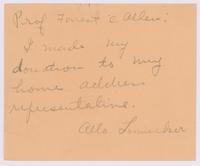 Prof Forrest "C Allen:
I made my
donation to my
home address
representative.